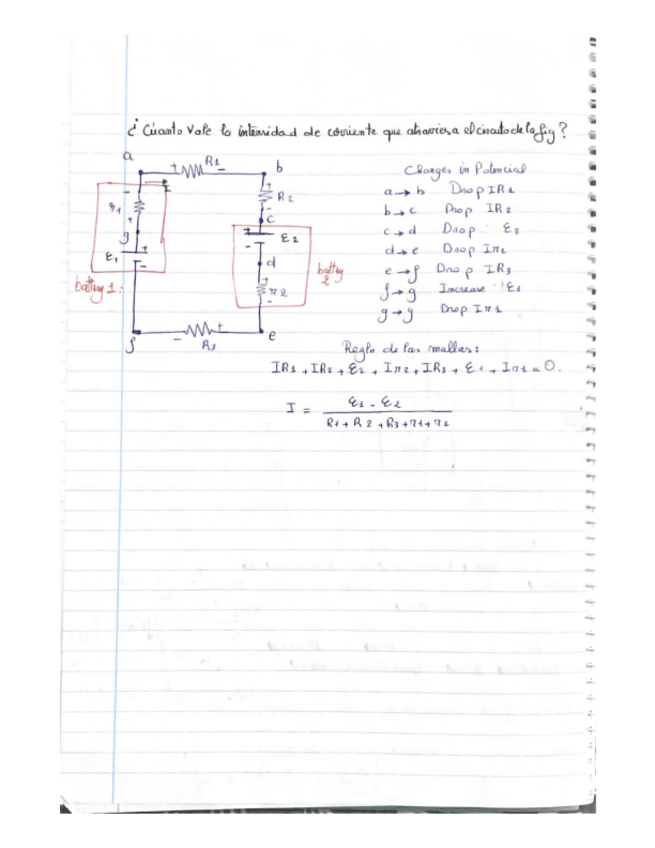 ¿ Cuanto Vale la intensidad de corriente que atraviesa el circuito de la fig ?
a
+ R1
b
I
-
r1
+
g
+
ε1
-
battery 1 :
+
R2
-
c
+
ε2
-
d
+
r2
-
battery
2
f
-
+
R3
e
Changes in Potencial
a → b Drop IR1
b → c Drop IR2
c → d Drop ε2
d → e Drop Ir2
e → f Drop IR3
f → g Increase ε1
g → g Drop Ir1
Regla de las mallas :
IR1 + IR2 + ε2 + Ir2 + IR3 + ε1 + Ir1 = 0.
I = ε1 - ε2
R1 + R2 + R3 + r1 + r2